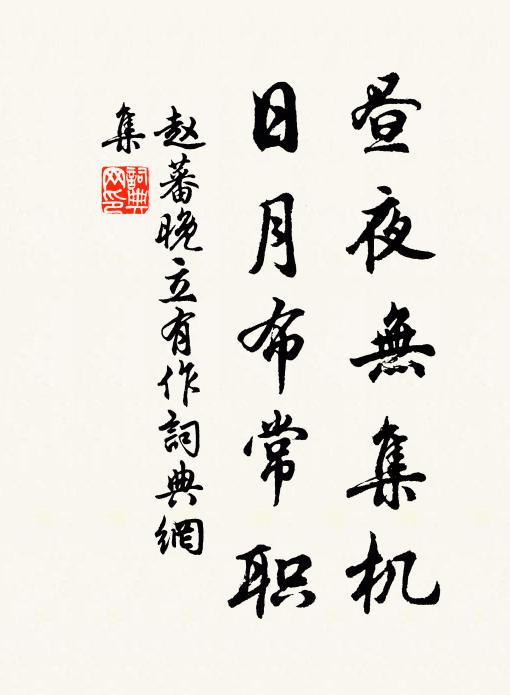 昼夜無集机
日月布常职
赵蕃晚立有作詞典網
集
詞典
网印